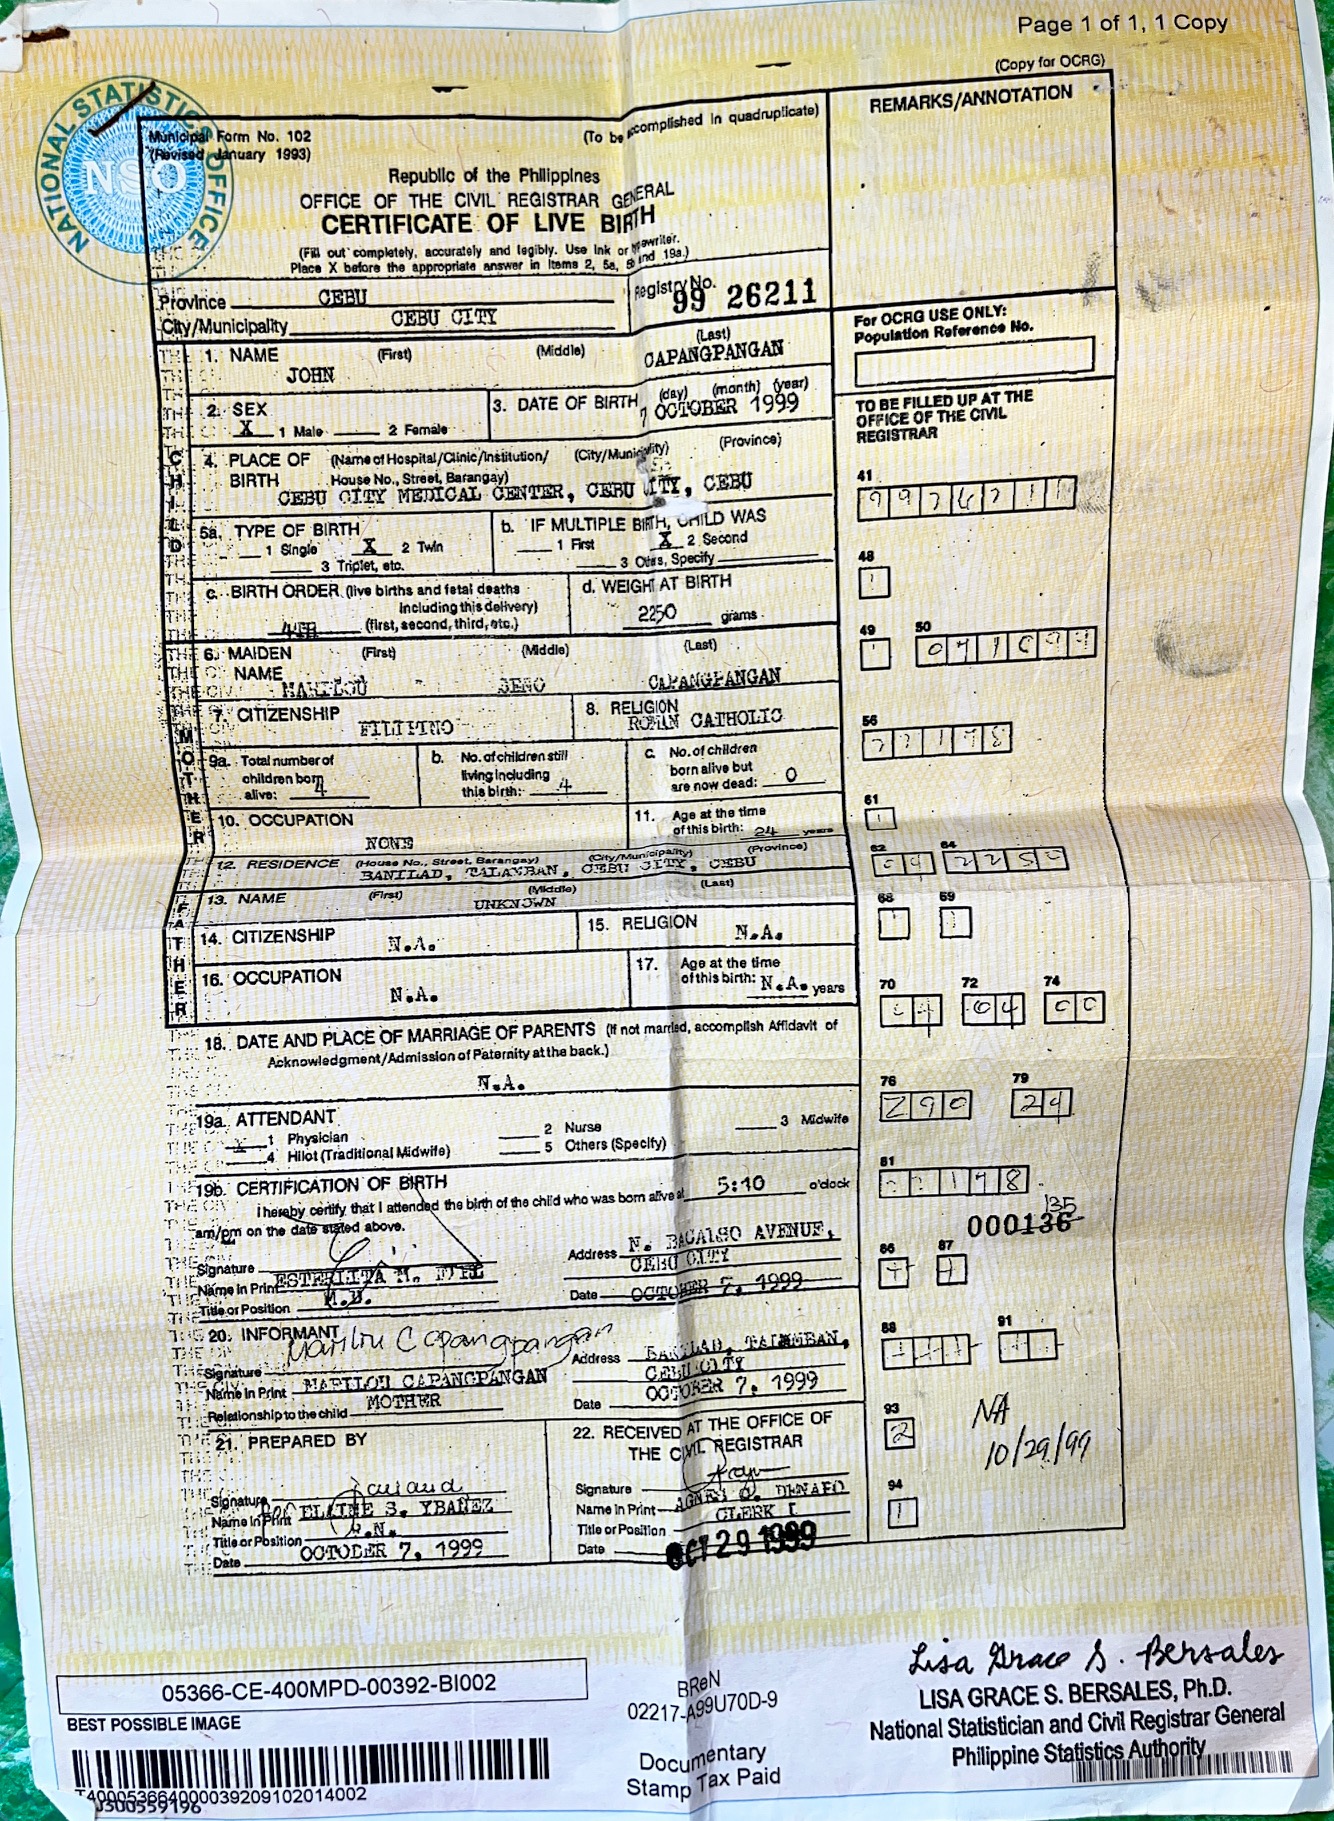 Page 1 of 1, 1 Copy
(Copy for OCRG)
NATIONAL STATISTICS OFFICE
NSO
Municipal Form No. 102
(Revised January 1993)
(To be accomplished in quadruplicate)
REMARKS/ANNOTATION
Republic of the Philippines
OFFICE OF THE CIVIL REGISTRAR GENERAL
CERTIFICATE OF LIVE BIRTH
(Fill out completely, accurately and legibly. Use ink or typewriter.
Place X before the appropriate answer in Items 2, 5a, 5b and 19a.)
Province CEBU
Registry No. 99 26211
City/Municipality CEBU CITY
For OCRG USE ONLY:
Population Reference No.
CHILD
1. NAME (First) (Middle) (Last)
JOHN CAPANGPANGAN
2. SEX
X 1 Male 2 Female
3. DATE OF BIRTH (day) (month) (year)
7 OCTOBER 1999
TO BE FILLED UP AT THE
OFFICE OF THE CIVIL
REGISTRAR
4. PLACE OF BIRTH (Name of Hospital/Clinic/Institution/ (City/Municipality) (Province)
House No., Street, Barangay)
CEBU CITY MEDICAL CENTER, CEBU CITY, CEBU
41
9926211
5a. TYPE OF BIRTH
1 Single X 2 Twin
3 Triplet, etc.
b. IF MULTIPLE BIRTH, CHILD WAS
1 First X 2 Second
3 Othrs, Specify
48
1
c. BIRTH ORDER (live births and fetal deaths
including this delivery)
4TH (first, second, third, etc.)
d. WEIGHT AT BIRTH
2250 grams
49
50
071099
MOTHER
6. MAIDEN NAME (First) (Middle) (Last)
MARILOU SENO CAPANGPANGAN
7. CITIZENSHIP FILIPINO
8. RELIGION
ROMAN CATHOLIC
56
22178
9a. Total number of
children born
alive: 4
b. No. of children still
living including
this birth: 4
c. No. of children
born alive but
are now dead: 0
10. OCCUPATION
NONE
11. Age at the time
of this birth: 24 years
61
1
12. RESIDENCE (House No., Street, Barangay) (City/Municipality) (Province)
BANILAD, TALAMBAN, CEBU CITY, CEBU
62
04
64
2250
FATHER
13. NAME (First) (Middle) (Last)
UNKNOWN
68
1
69
1
14. CITIZENSHIP N.A.
15. RELIGION N.A.
16. OCCUPATION
N.A.
17. Age at the time
of this birth: N.A. years
70
72
04
74
00
18. DATE AND PLACE OF MARRIAGE OF PARENTS (If not married, accomplish Affidavit of
Acknowledgment/Admission of Paternity at the back.)
N.A.
76
290
79
24
19a. ATTENDANT
X 1 Physician 2 Nurse 3 Midwife
4 Hilot (Traditional Midwife) 5 Others (Specify)
19b. CERTIFICATION OF BIRTH
I hereby certify that I attended the birth of the child who was born alive at 5:10 o'clock
am/pm on the date stated above.
81
22178
135
000136
Signature
Address N. BACALSO AVENUE,
CEBU CITY
Name in Print ESTERLITA M.
Title or Position M.D.
Date OCTOBER 7, 1999
86
87
20. INFORMANT
Signature Marilou Capangpangan
Address BANILAD, TALAMBAN,
CEBU CITY
Name in Print MARILOU CAPANGPANGAN
Relationship to the child MOTHER
Date OCTOBER 7, 1999
88
91
21. PREPARED BY
Signature
Name in Print ELAINE S. YBAÑEZ
Title or Position R.N.
Date OCTOBER 7, 1999
22. RECEIVED AT THE OFFICE OF
THE CIVIL REGISTRAR
Signature
Name in Print
Title or Position CLERK I
Date OCT 29 1999
93
2
NA
10/29/99
94
1
05366-CE-400MPD-00392-BI002
BEST POSSIBLE IMAGE
T400053664000039209102014002
J300559196
BReN
02217-A99U70D-9
Documentary
Stamp Tax Paid
Lisa Grace S. Bersales
LISA GRACE S. BERSALES, Ph.D.
National Statistician and Civil Registrar General
Philippine Statistics Authority